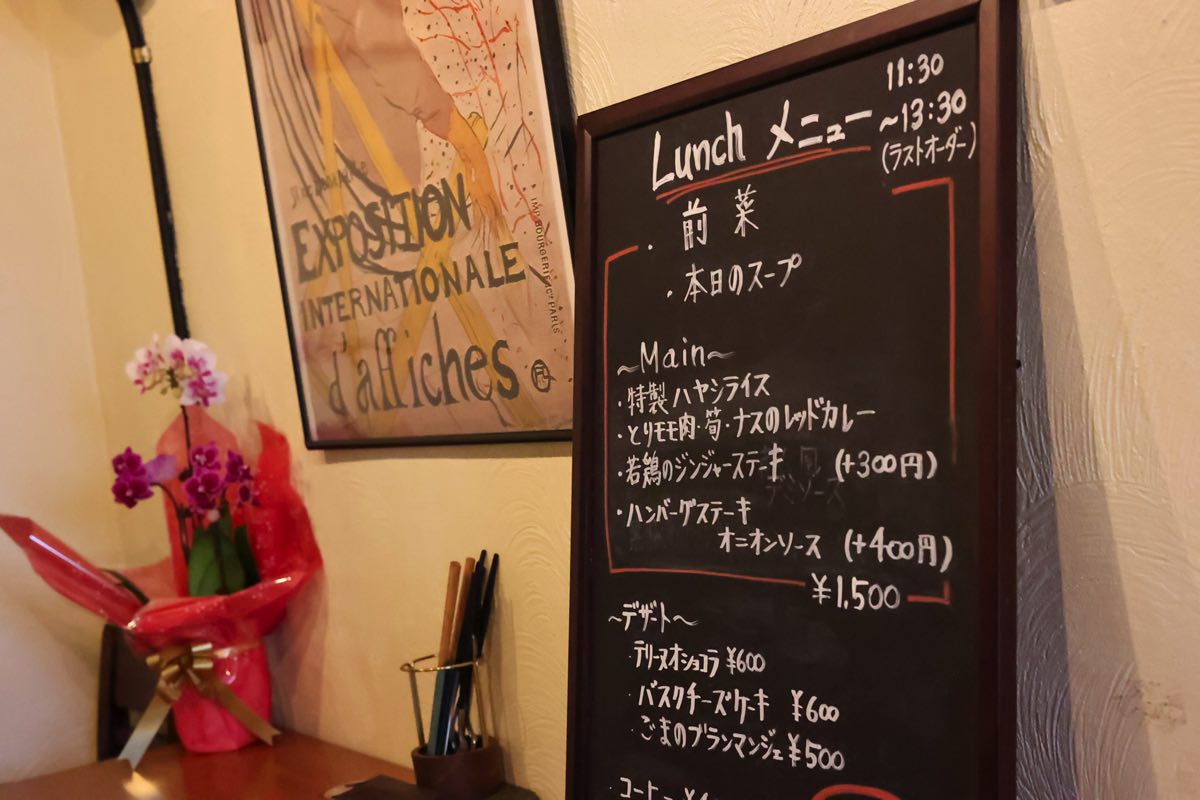 EXPOSITION
INTERNATIONALE
d'affiches
IMP. BOURGERIE & Cº PARIS
Lunch メニュー
11:30
～13:30
(ラストオーダー)
・前菜
・本日のスープ
～Main～
・特製ハヤシライス
・とりモモ肉・筍・ナスのレッドカレー
・若鶏のジンジャーステーキ (+300円)
・ハンバーグステーキ
オニオンソース (+400円)
¥1,500
～デザート～
・テリーヌオショコラ ¥600
・バスクチーズケーキ ¥600
・ごまのブランマンジェ ¥500